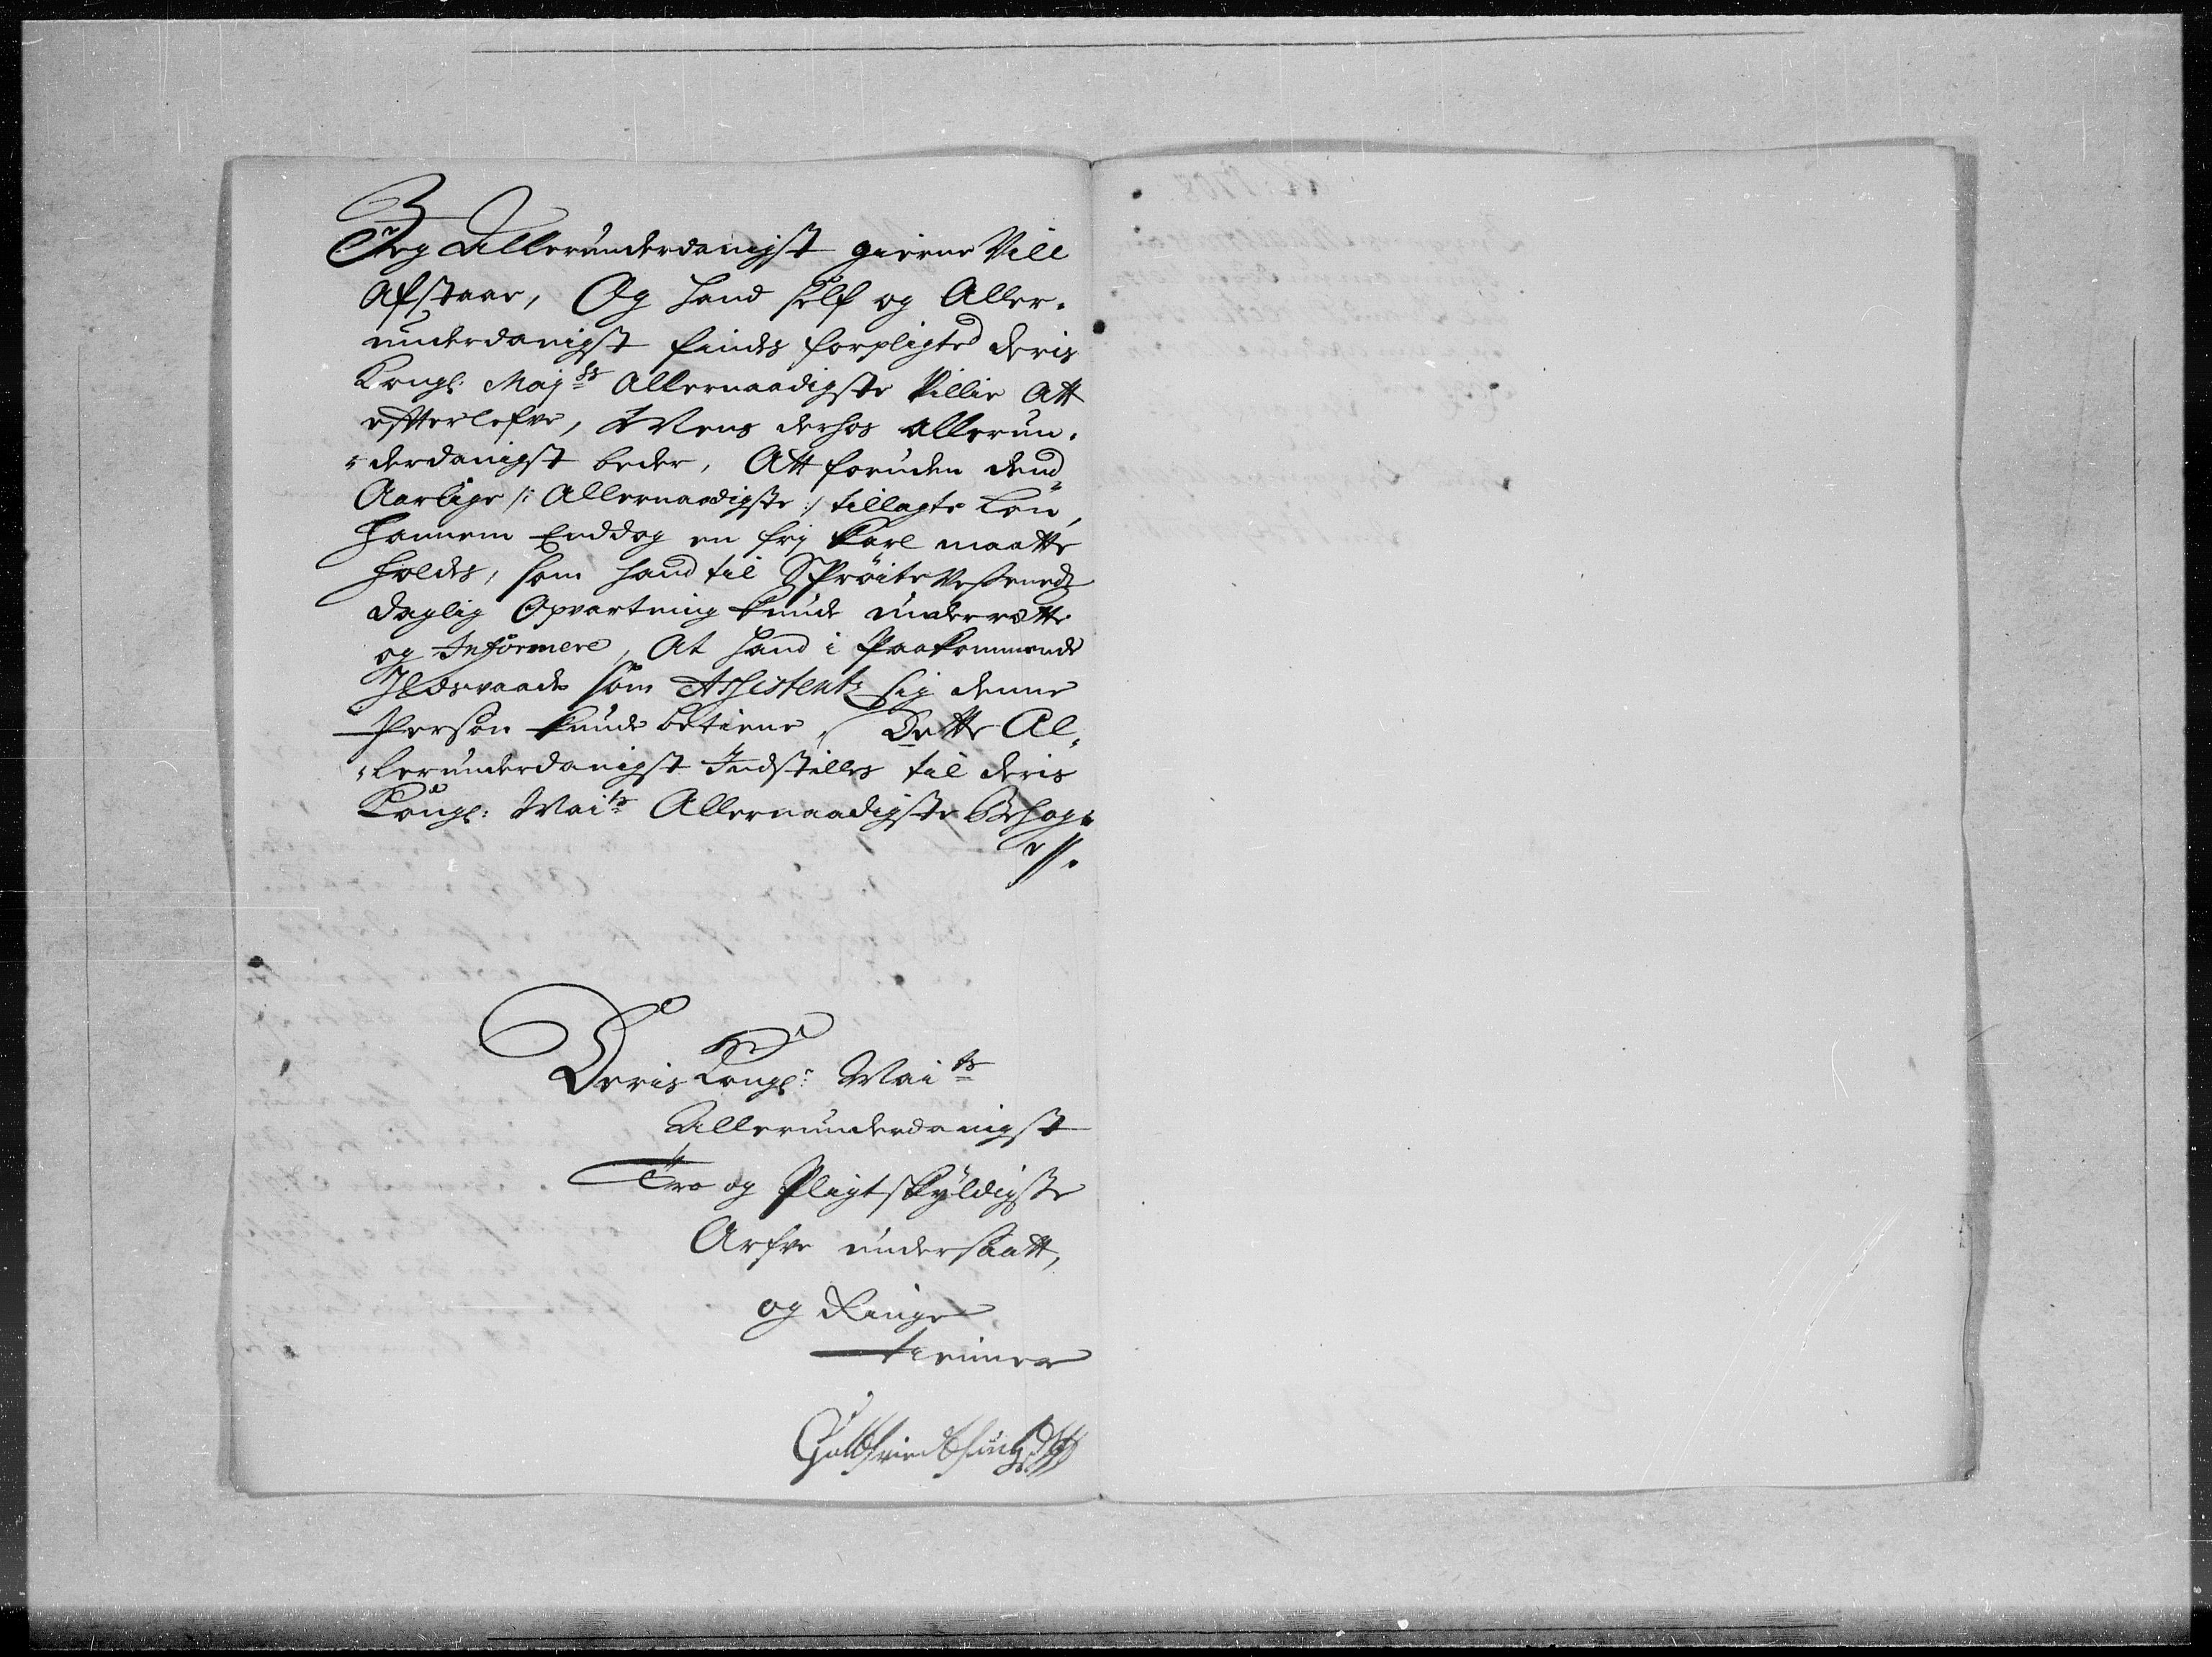 Jeg Allerunderdanigst gierne Vill
Afstaae, Og hand self og Aller-
underdanigst findes forpligted deris
Kongl: Majts Allernaadigste Villie Att
efterlefve, Mens derhos allerun-
-derdanigst beder, Att foruden dend
Aarlige /: Allernaadigste :/ tillagte Løn,
hannem Enddog en frj Karl maatte
holdes, som hand til Sprøite Vesenedz
daglig Opvartning kunde underrette
og Informere, At hand i Paakommende
Ildsvaade som Assistentz sig denne
Person kunde betiene, Dette Al-
-lerunderdanigst Indstilles til deris
Kongl: Maits Allernaadigste Behag.
Deris Kongl: Maits
Allerunderdanigst
Tro og Pligtskyldigste
Arfve undersaatt,
og Ringe
tienner
Gottfried